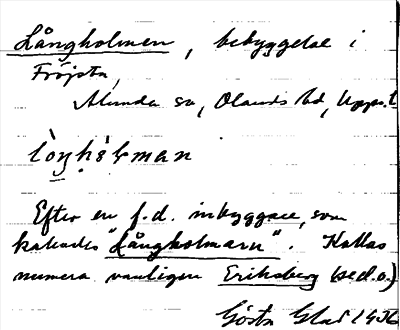 Långholmen, bebyggelse i
Fröjsta,
Alunda sn, Olands hd, Upps. l
lòŋhò̢lman
Efter en f.d. inbyggare, som
kallades "Långholmarn". Kallas
numera vanligen Eriksberg (se d.o.)
Gösta